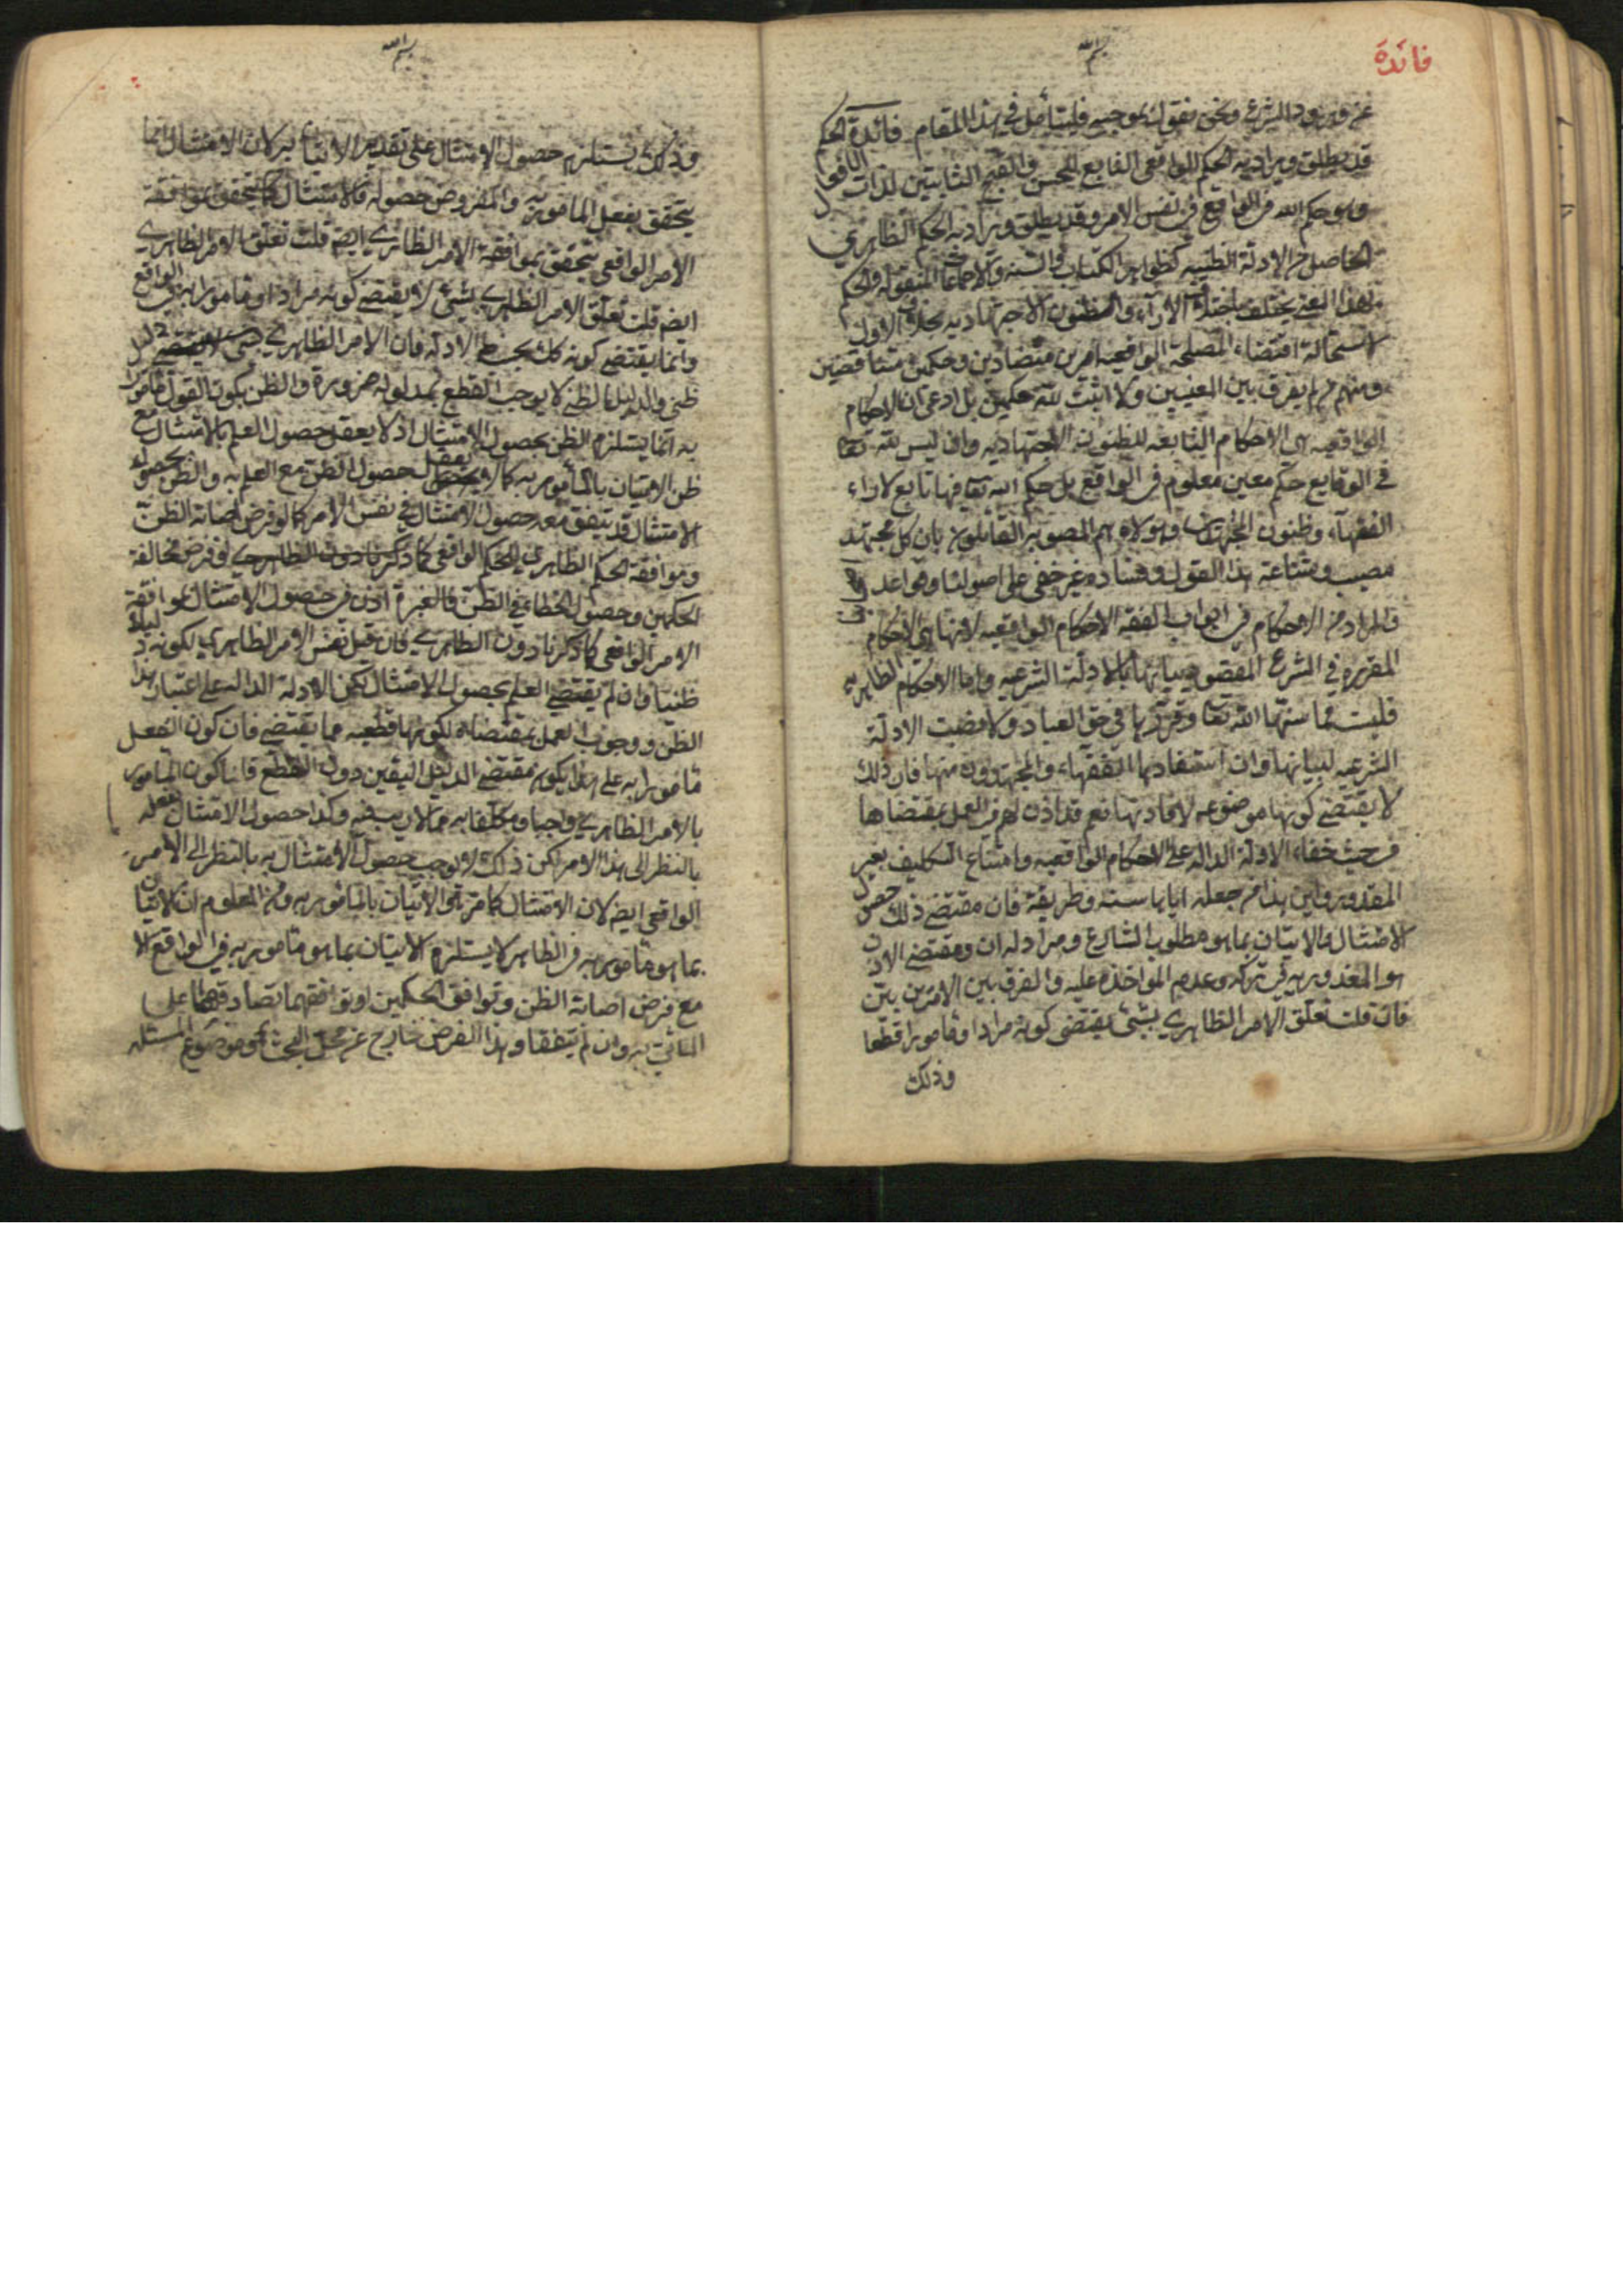 فائدة
بسم الله
عن ورود الشرع ونحن نقول بموجبه فليتأمل في هذا المقام فائدة الحكم
قد يطلق ويراد به الحكم الواقعي التابع للحسن والقبح الثابتين لذات الافعال
وهو حكم الله في الواقع في نفس الامر وقد يطلق ويراد به الحكم الظاهري
الحاصل من الادلة الظنيه كظواهر الكتاب والسنه والاجماعات المنقوله والحكم
بهذا المعنى يختلف باختلاف الآراء والظنون الاجتهاديه بخلاف الاول
لاستحالة اقتضاء المصلحة الواقعيه امرين متضادين وحكمين متناقضين
ومنهم من لم يفرق بين المعنيين ولا اثبت لله حكمين بل ادعى ان الاحكام
الواقعيه هى الاحكام التابعه للظنون الاجتهاديه وان ليس لله تعا
في الوقايع حكم معين معلوم في الواقع بل حكم الله تعا فيها تابع لاراء
الفقهاء وظنون المجتهدين وهولاء هم المصوبه القائلون بان كل مجتهد
مصيب وشناعة هذا القول وفساده غير خفى على اصولنا وقواعدنا
فالمراد من الاحكام في ابواب الفقه الاحكام الواقعيه لانها هى الاحكام
المقرره في الشرع المقصود بيانها بالادلة الشرعيه واما الاحكام الظاهريه
فليست مما سنها الله تعا وقررها في حق العباد ولا نصبت الادلة
الشرعيه لبيانها وان استفادها الفقهاء والمجتهدون منها فان ذلك
لا يقتضي كونها موضوعه لافادتها نعم قد اذن لهم في العمل بمقتضاها
من حيث خفاء الادلة الداله على الاحكام الواقعيه وامتناع التكليف بغير
المقدور واين هذا من جعله اياها سنته وطريقة فان مقتضى ذلك حصول
الامتثال والاتيان بما هو مطلوب الشارع ومراد له ومقتضى الاذن
هو المعذوريه في تركه وعدم المواخذه عليه والفرق بين الامرين بين
فان قلت تعلق الامر الظاهري بشئ يقتضى كونه مرادا ومامورا قطعا
وذلك
بسم الله
وذلك يستلزم حصول الامتثال على تقدير الاتيان به لان الامتثال انما
يتحقق بفعل المامور به والمفروض حصوله فالامتثال كما يتحقق بموافقة
الامر الواقعي يتحقق بموافقة الامر الظاهري ايضا قلت تعلق الامر الظاهري
بشئ لا يقتضي كونه مرادا ومامورا به في الواقع
وانما يقتضي كونه كذلك بحسب الادله فان الامر الظاهري
ظنى والدليل الظني لا يوجب القطع بمدلوله ضرورة والظن بكون الفعل مامورا
به انما يستلزم الظن بحصول الامتثال اذ لا يعقل حصول العلم بالامتثال مع
ظن الاتيان بالمأمور به كما لا يعقل حصول الظن مع العلم به والظن بحصول
الامتثال قد يتفق معه حصول الامتثال في نفس الامر كما لو فرض اصابة الظن
وموافقة الحكم الظاهري للحكم الواقعي
الحكمين وحصول الخطاء في الظن فالعبرة اذن في حصول الامتثال بموافقة
الامر الواقعي كما ذكرنا دون الظاهري فان قيل نفس الامر الظاهري لكونه دليلا
ظنيا وان لم يقتضي العلم بحصول الامتثال لكن الادلة الداله على اعتبار هذا
الظن ووجوب العمل بمقتضاه لكونها قطعيه مما يقتضي فان كون الفعل
مامورا به على هذا يكون مقتضى الدليل اليقين دون القطع قلنا كون المامور
بالامر الظاهري واجبا ومكلفا به مما لا ريب فيه وكذا حصول الامتثال بفعله
بالنظر الى هذا الامر لكن ذلك لا يوجب حصول الامتثال به بالنظر الى الامر
الواقعي ايضا لان الامتثال كما مر هى الاتيان بالمامور به ومن المعلوم ان الاتيان
بما هو مامور به في الظاهر لا يستلزم الاتيان بما هو مامور به في الواقع الا
مع فرض اصابة الظن وتوافق الحكمين او توافقهما تصادقهما على
الماتي به وان لم يتفقا وهذا الفرض خارج عن محل البحث وموضوع المسئله